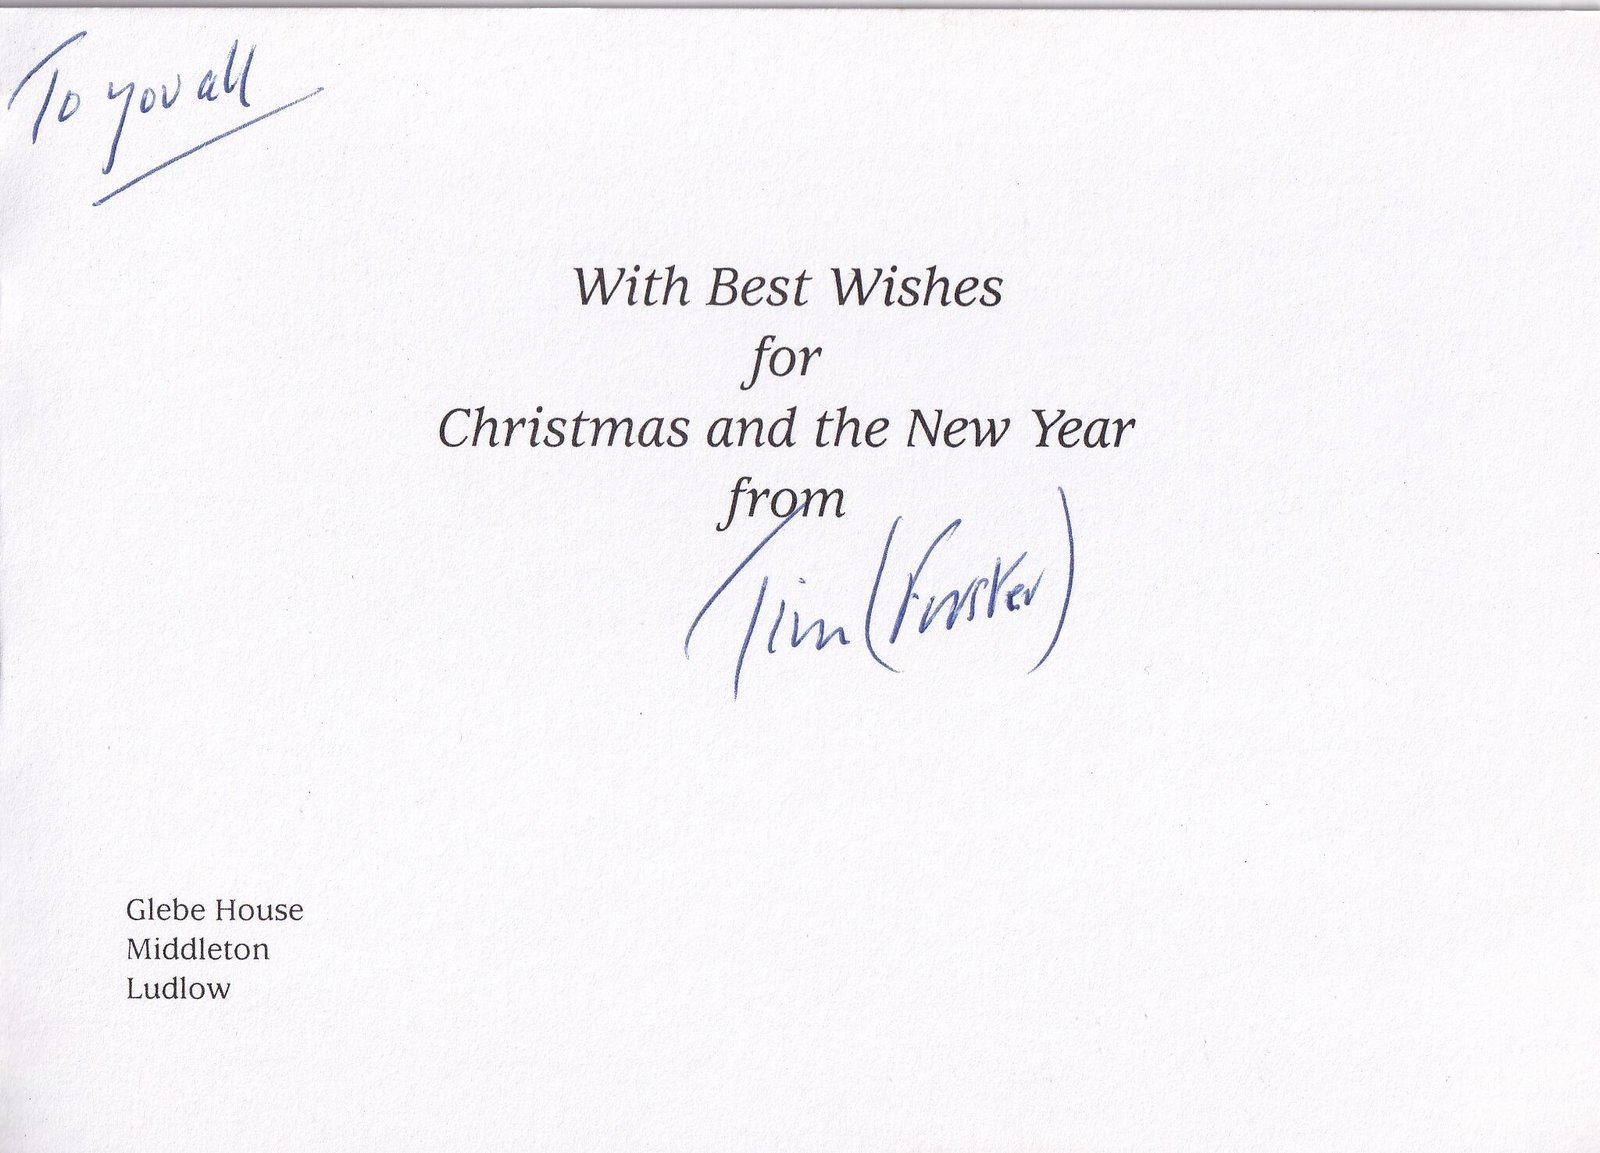 To you all
With Best Wishes
for
Christmas and the New Year
from
Tim (Forster)
Glebe House
Middleton
Ludlow